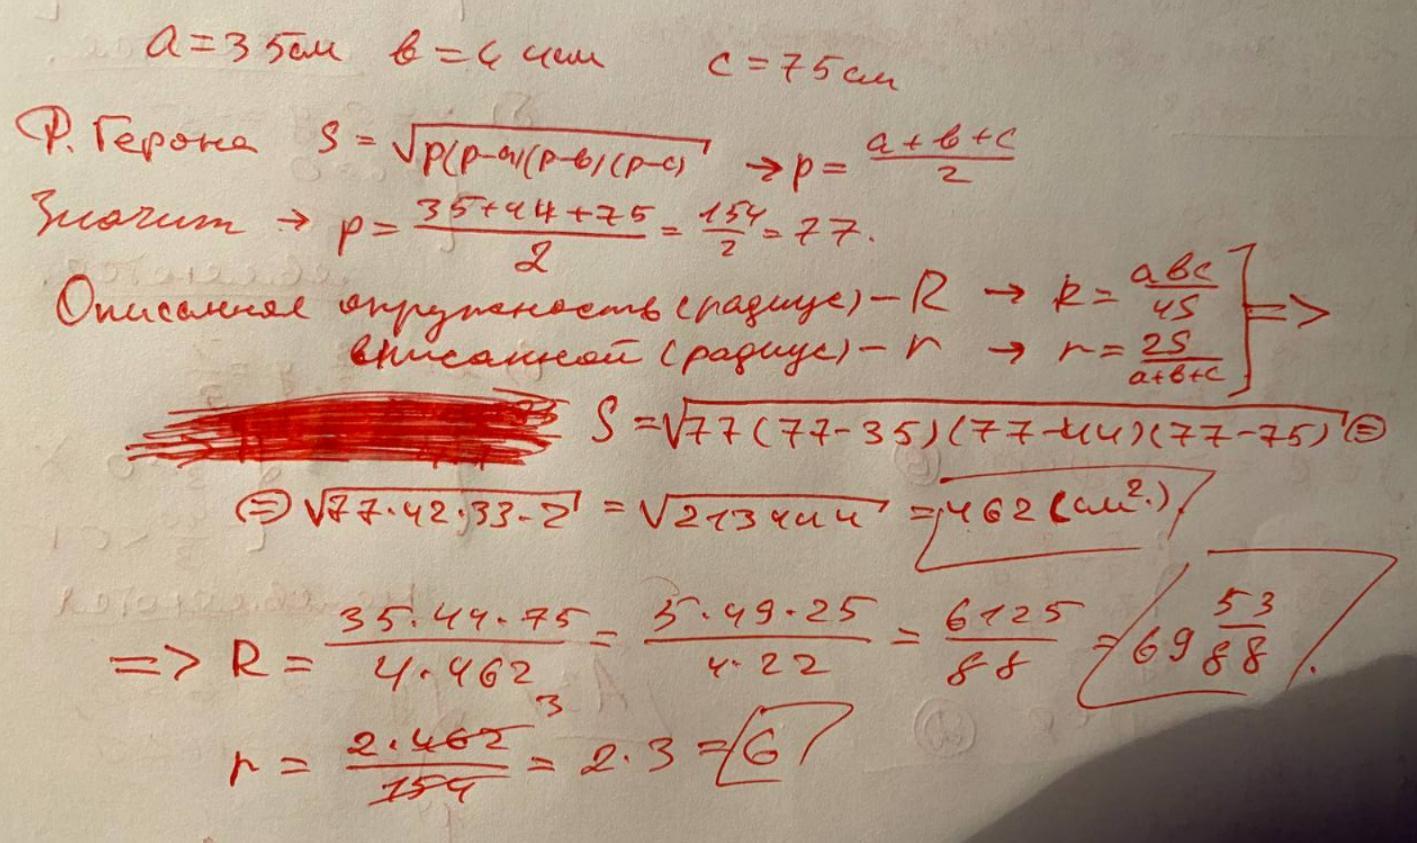 a=35см в=44см c=75см
Ф. Герона S=√p(p-a)(p-в)(p-c) → p= a+в+c/2
Значит → p= 35+44+75/2 = 154/2 = 77.
Описанная окружность (радиус) – R → R= aвc/4S ] =>
вписанной (радиус) – r → r= 2S/a+в+c
S=√77(77-35)(77-44)(77-75) =
= √77·42·33·2 = √213444 = 462 (см².)
=> R = 35·44·75/4·462 = 5·49·25/4·22 = 6125/88 = 69 53/88.
r = 2·462/154 3 = 2·3 = 6